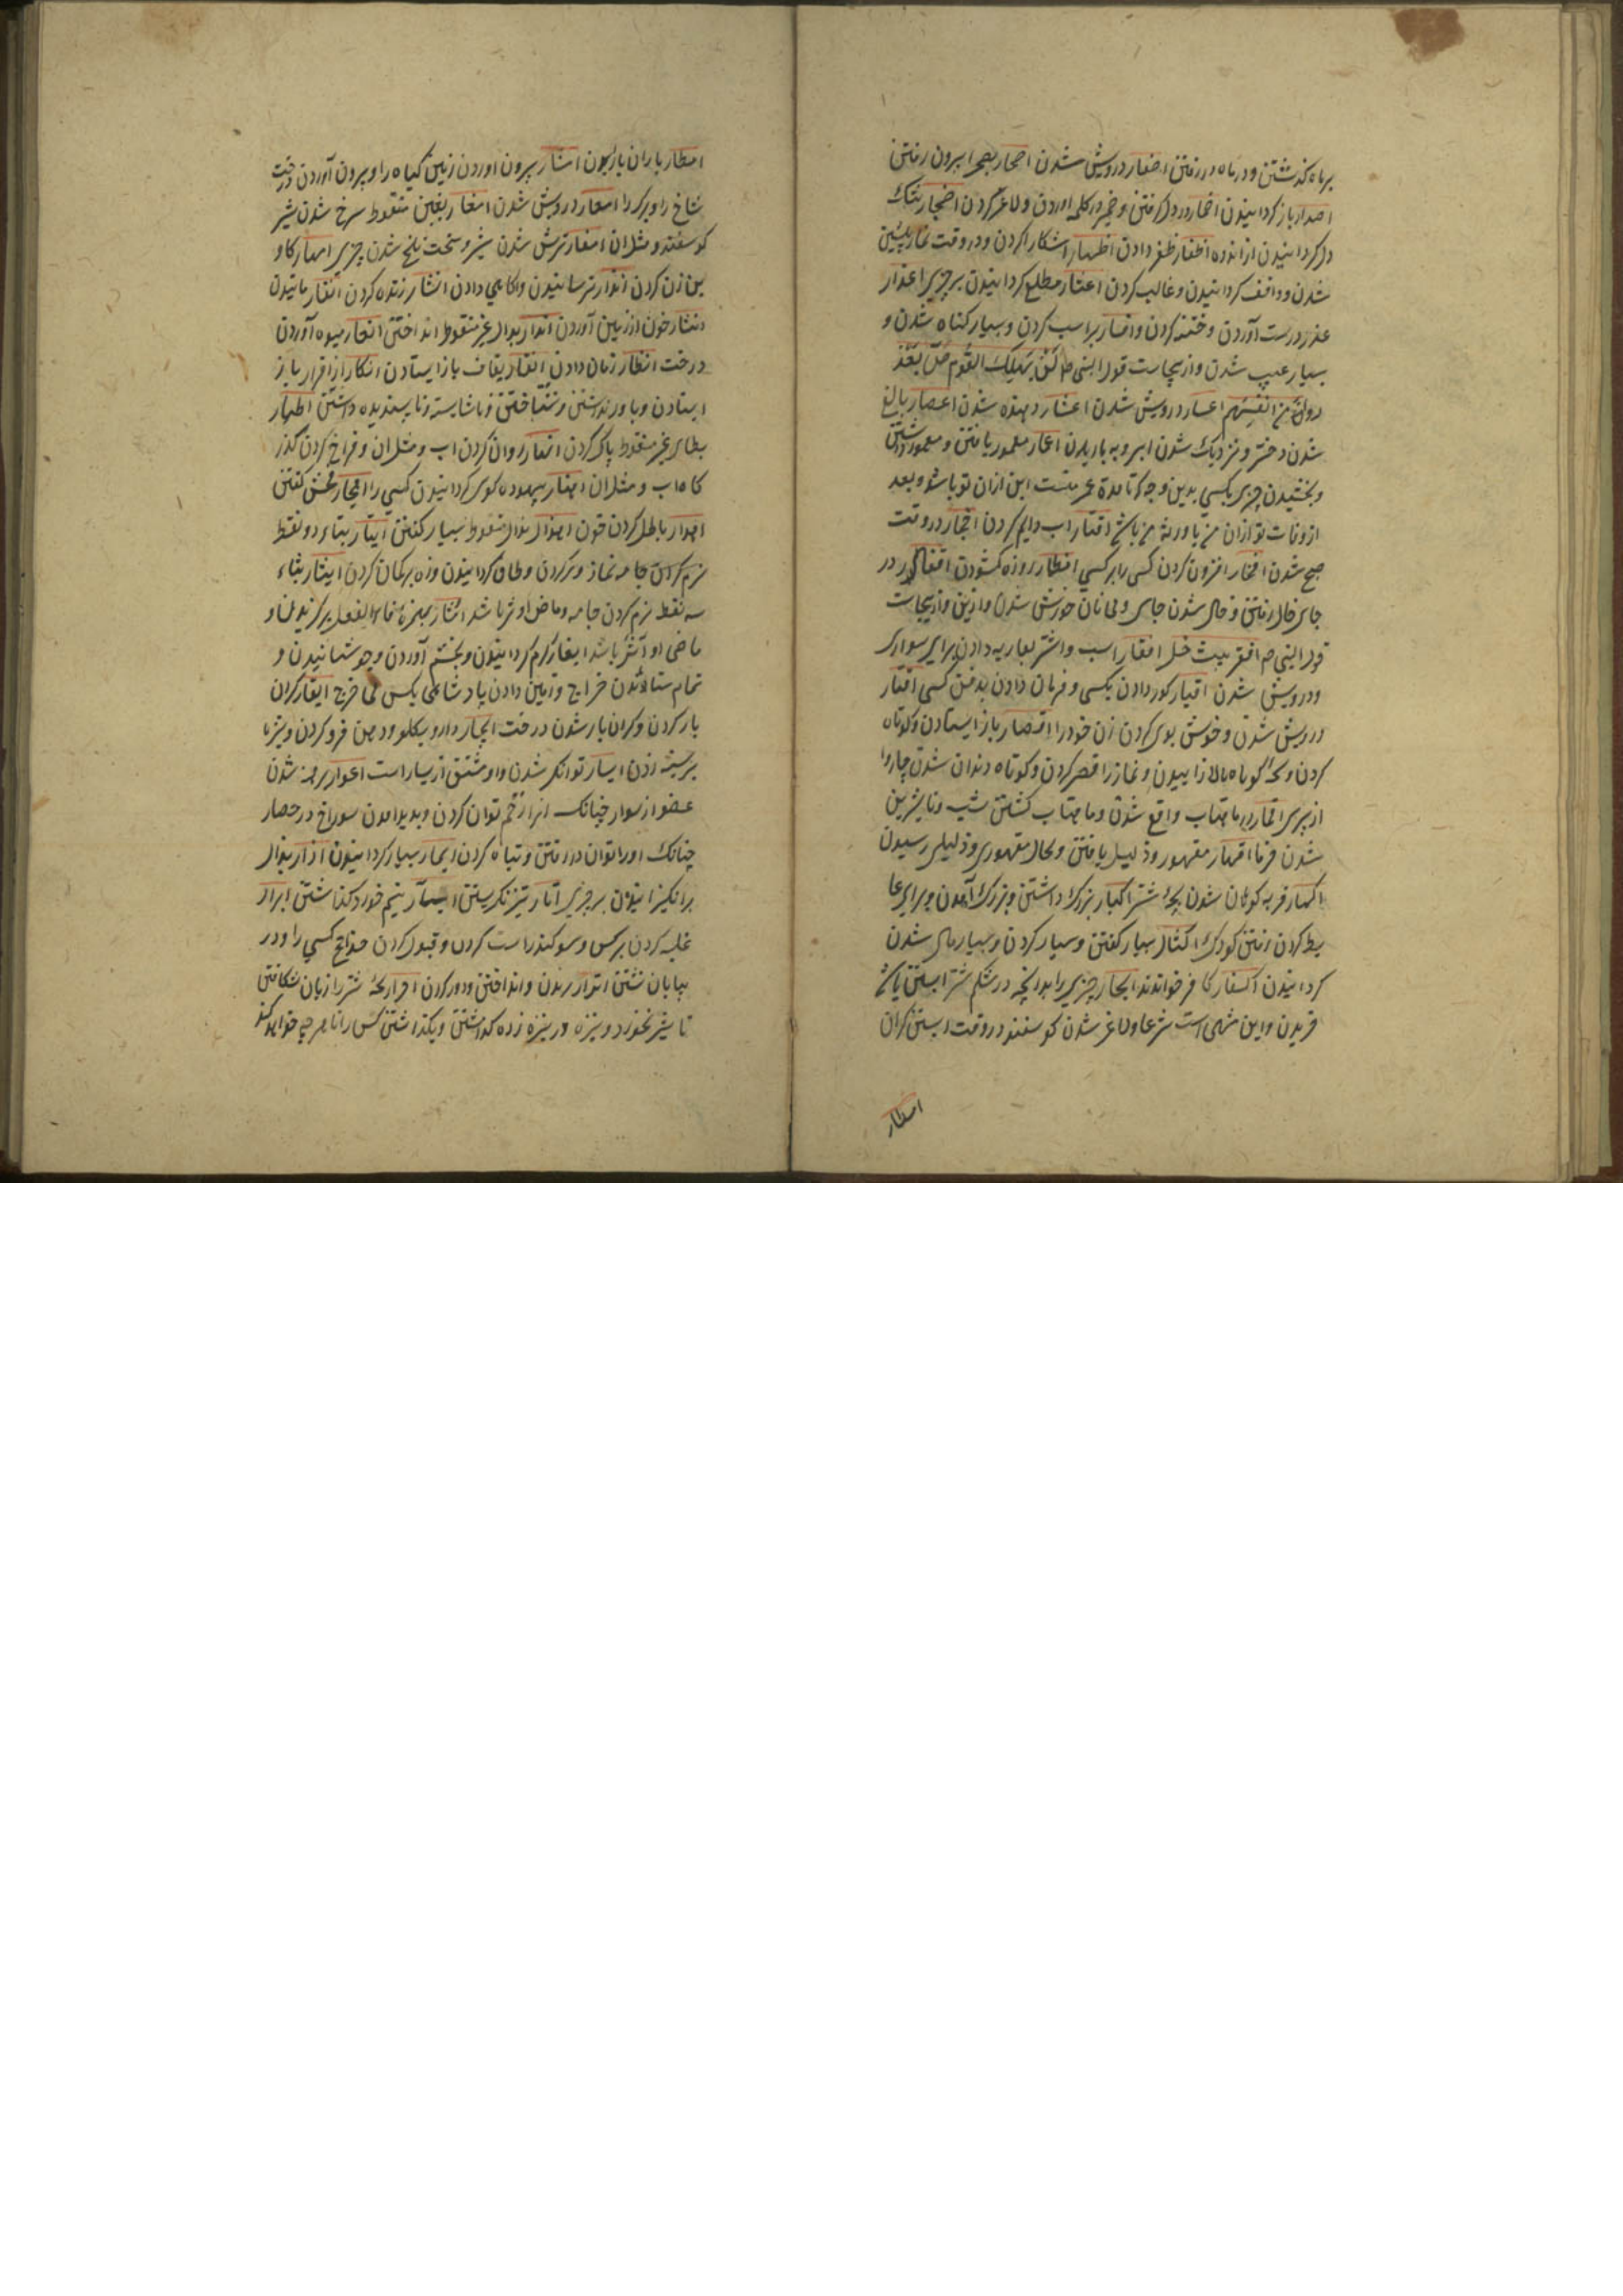 بر ماه گذشتن و در ماه در رفتن اصفار درویش شدن اصحار بصحرا بیرون رفتن
اصدار باز گردانیدن اضمار در دل گرفتن و ضمیر در کلمه اوردن و لاغر کردن اضجار تنک
دل گردانیدن از اندوه اظفار ظفر دادن اظهار اشکارا کردن و در وقت نماز پیشین
شدن و واقف گردانیدن و غالب کردن اعثار مطلع گردانیدن بر چیزی اعذار
عذر درست آوردن و ختنه کردن و افسار بر اسب کردن و بسیار کناه شدن و
بسیار عیب شدن و ازینجاست قول النبی صلم لن یهلک القوم حتی یعذر
من انفسهم اعسار درویش شدن اعشار ده شدن اعصار بالغ
شدن دختر و نزدیک شدن ابر و به باریدن اعمار معمور یافتن و معمور داشتن
و بخشیدن چیزی بکسی بدین وجه که تا مدة عمر تست این ازان تو باشد و بعد
از وفات تو ازان من یا ورثه من باشد اقتار اب دایم کردن افجار در وقت
صبح شدن افخار افزون کردن کسی را بر کسی افطار روزه گشودن اقفار در
جای خالی رفتن و خالی شدن جای و بی نان خورش شدن و ازین و ازینجاست
قول النبی صم ما اقفر بیت خل افقار اسب و اشتر بعاریه دادن برای سواری
و درویش شدن اقبار کور دادن بکسی و فرمان دادن بدفن کسی اقتار
درویش شدن و خوش بوی کردن زن خود را اقصار باز ایستادن و کوتاه
کردن و بچهٔ کوتاه بالا زاییدن و نماز را قصر کردن و کوتاه دندان شدن چاروا
از پیری اقمار در ماهتاب واقع شدن و ماهتاب کشتن شب و نا شیرین
شدن خرما اقهار مقهور و ذلیل یافتن و بحال مقهوری و ذلیلی رسیدن
اکهار فربه کوهان شدن بچهٔ شتر اکبار بزرک داشتن و بزرک آمدن و برای
کردن رفتن کودک اکثار بسیار کفتن و بسیار کردن و بسیار مال شدن
گردانیدن اکفار کافر خواندند امجار چیزی را بدانچه در شکم شتر ابستن باشد
خریدن و این منهی است شرعا و لاغر شدن کوسفند در وقت ابستن کران
امطار
امطار باران بارانیدن امشار بیرون اوردن زمین کیاه را و بیرون آوردن درخت
شاخ را و برک را امعار درویش شدن امغار بغین منقوط سرخ شدن شیر
کوسفند و مثل ان امقار ترش شدن شیر و سخت تلخ شدن چیزی امهار کاو
بن زن کردن انذار ترسانیدن و اکاهی دادن انشار زنده کردن انقار مانیدن
خون از بینی آوردن اندار بدال غیر منقوط انداختن اثمار میوه آوردن
درخت انظار زمان دادن انقار بقاف باز ایستادن انکار از اقرار باز
ایستادن و باور نداشتن و نشناختن و ناشایسته و ناپسندیده داشتن اطهار
بطای غیر منقوط پاک کردن انهار روان کردن اب و مثل ان و فراخ کردن کذر
کاه اب و مثل ان اهتار بیهوده کوی گردانیدن کسی را اهجار فحش کفتن
اهدار باطل کردن خون اهذار بذال منقوط بسیار کفتن ایتار بتاء دو نقط
نماز وتر کردن و طاق گردانیدن و زه بر کمان کردن ایثار بثاء
سه نقط نرم کردن جامه و ماضی او وثر باشد ایثار برکزیدن و
ماضی او آثر باشد ایغار گرم گردانیدن و بخشم آوردن و جوشانیدن و
تمام ستاندن خراج و زمین دادن پادشاهی بکسی بی خرج ایقار کران
بار کردن و کران بار شدن درخت ایجار دارو بکلو و دهن فرو کردن و نیزه
بر سینه زدن ایسار توانکر شدن و او مشتق از یسار است اعوار برهنه شدن
عضو از سوار چنانک انرا زخم توان کردن و پدید امدن سوراخ در حصار
چنانک اورا توان در رفتن و تباه کردن ابمار بسیار گردانیدن
برانکیزانیدن بر چیزی اتآر تیز نکریستن اسآر نیم خورد کذاشتن ابرار
غلبه کردن بر کس و سوکند راست کردن و قبول کردن حوایج کسی را و در
بیابان نشتن اترار بریدن و انداختن و دور کردن اجرار بچهٔ شتر را زبان شکافتن
تا شیر نخورد و نیزه در نیزه زده کذاشتن و بکذاشتن کس را تا هر چه خواهد کند